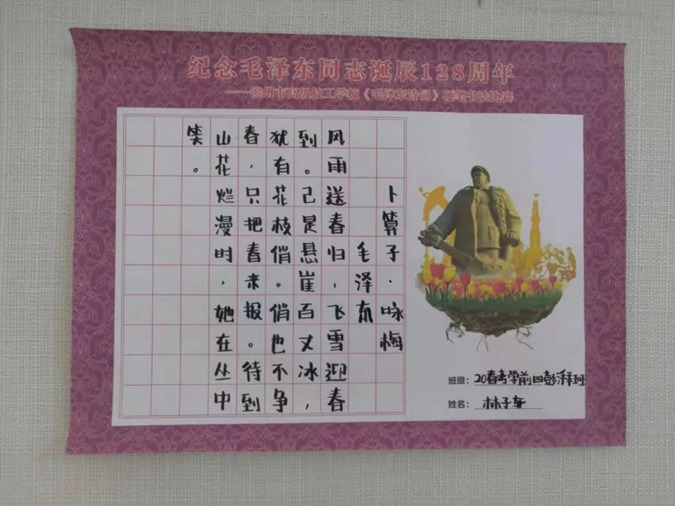 纪念毛泽东同志诞辰128周年
市高级技工学校《毛泽东诗词》硬笔书法比赛
卜算子·咏梅
毛泽东
风雨送春归，飞雪迎春
到。己是悬崖百丈冰，
犹有花枝俏。俏也不争
春，只把春来报。待到
山花烂漫时，她在丛中
笑。
班级：20春考学前四彭湃班
姓名：林子